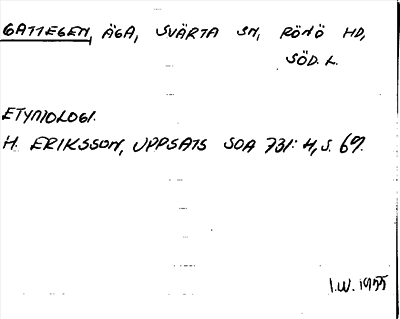 GATTEGEN, ÄGA, SVÄRTA SN, RÖNÖ HD,
SÖD. L.
ETYMOLOGI.
H. ERIKSSON, UPPSATS SOA 731:4, S. 69.
I.W. 1955